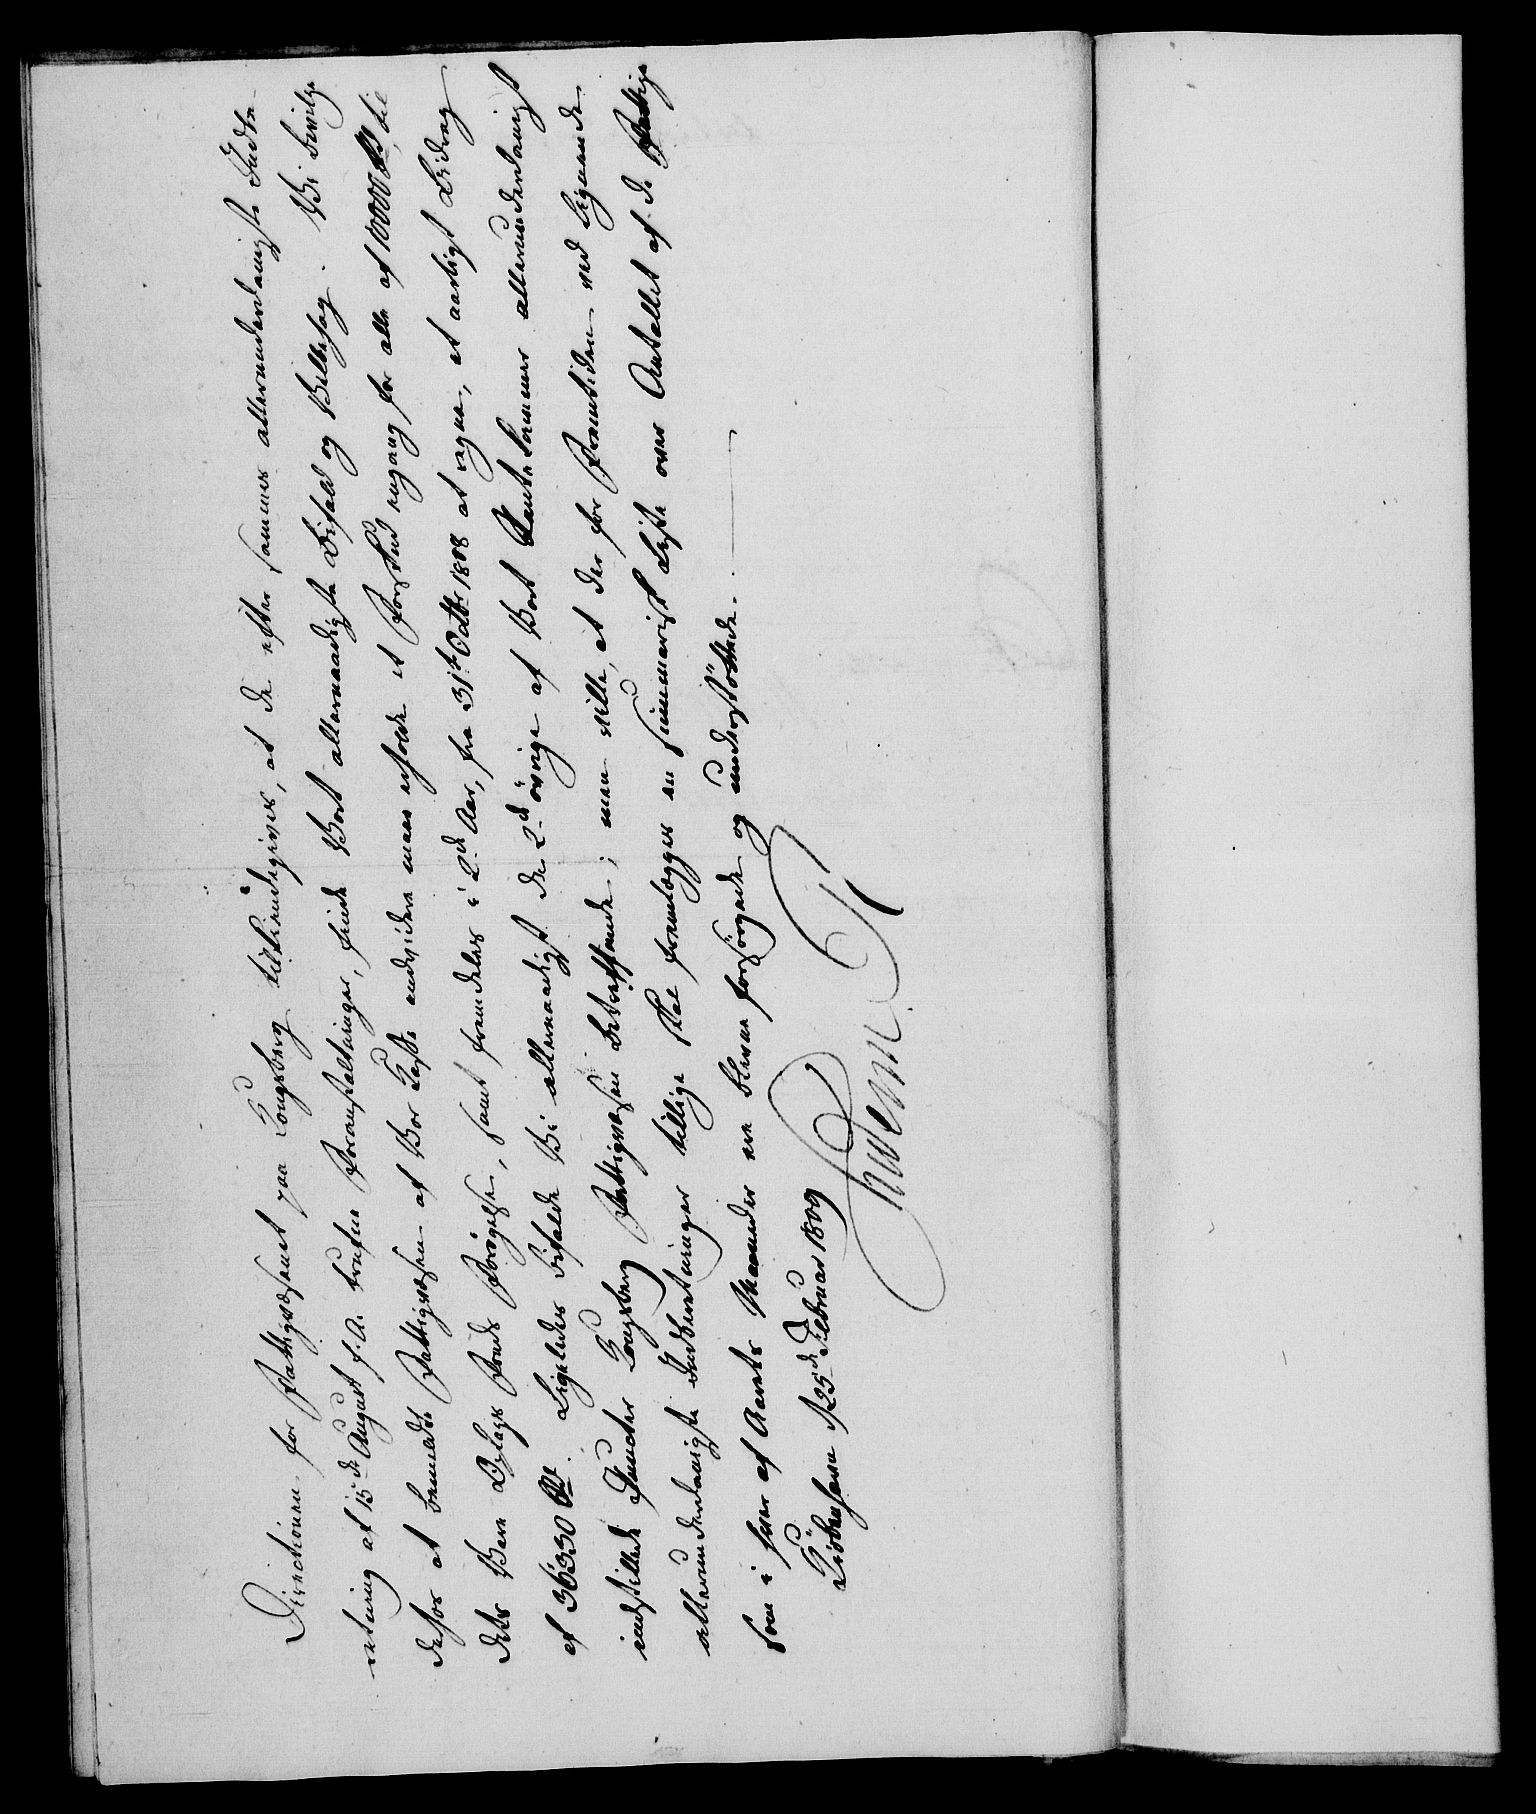 Directionen for Fattigvæsenet paa Kongsberg tilkiendegives, at da efter sammes allerunderdanigste Indbe-
retning af 15de August f. A. trufne Foranstaltninger, finde Vort allernaadigste Bifald og Velbehag. Vi bevilge
derfor at bemeldte Fattigvæsen af Vor Casse endvidere maae erholde et Forskud engang for alle af 10000 Rd, til
dets Vare Oplags Fonds Forøgelse, samt fremdeles i 2de Aar, fra 31te Octbr 1808 at regne, et aarligt Bidrag
af 36330 Rd. Ligeledes bifalde Vi allernaadigst de 2de øvrige af Vort Rentekammer allerunderdanigst
indstillede Puncter Kongsberg Fattigvæsen betreffende; men ville, at der for Fremtiden ved lignende
allerunderdanigste Indberetninger tillige skal fremlægges en summarisk Liste over Antallet af de Fattige
som i hver af Aarets Maaneder ere blevne forsørgede og understøttede.
Kiøbenhavn d 25de Februar 1809
Frederik R